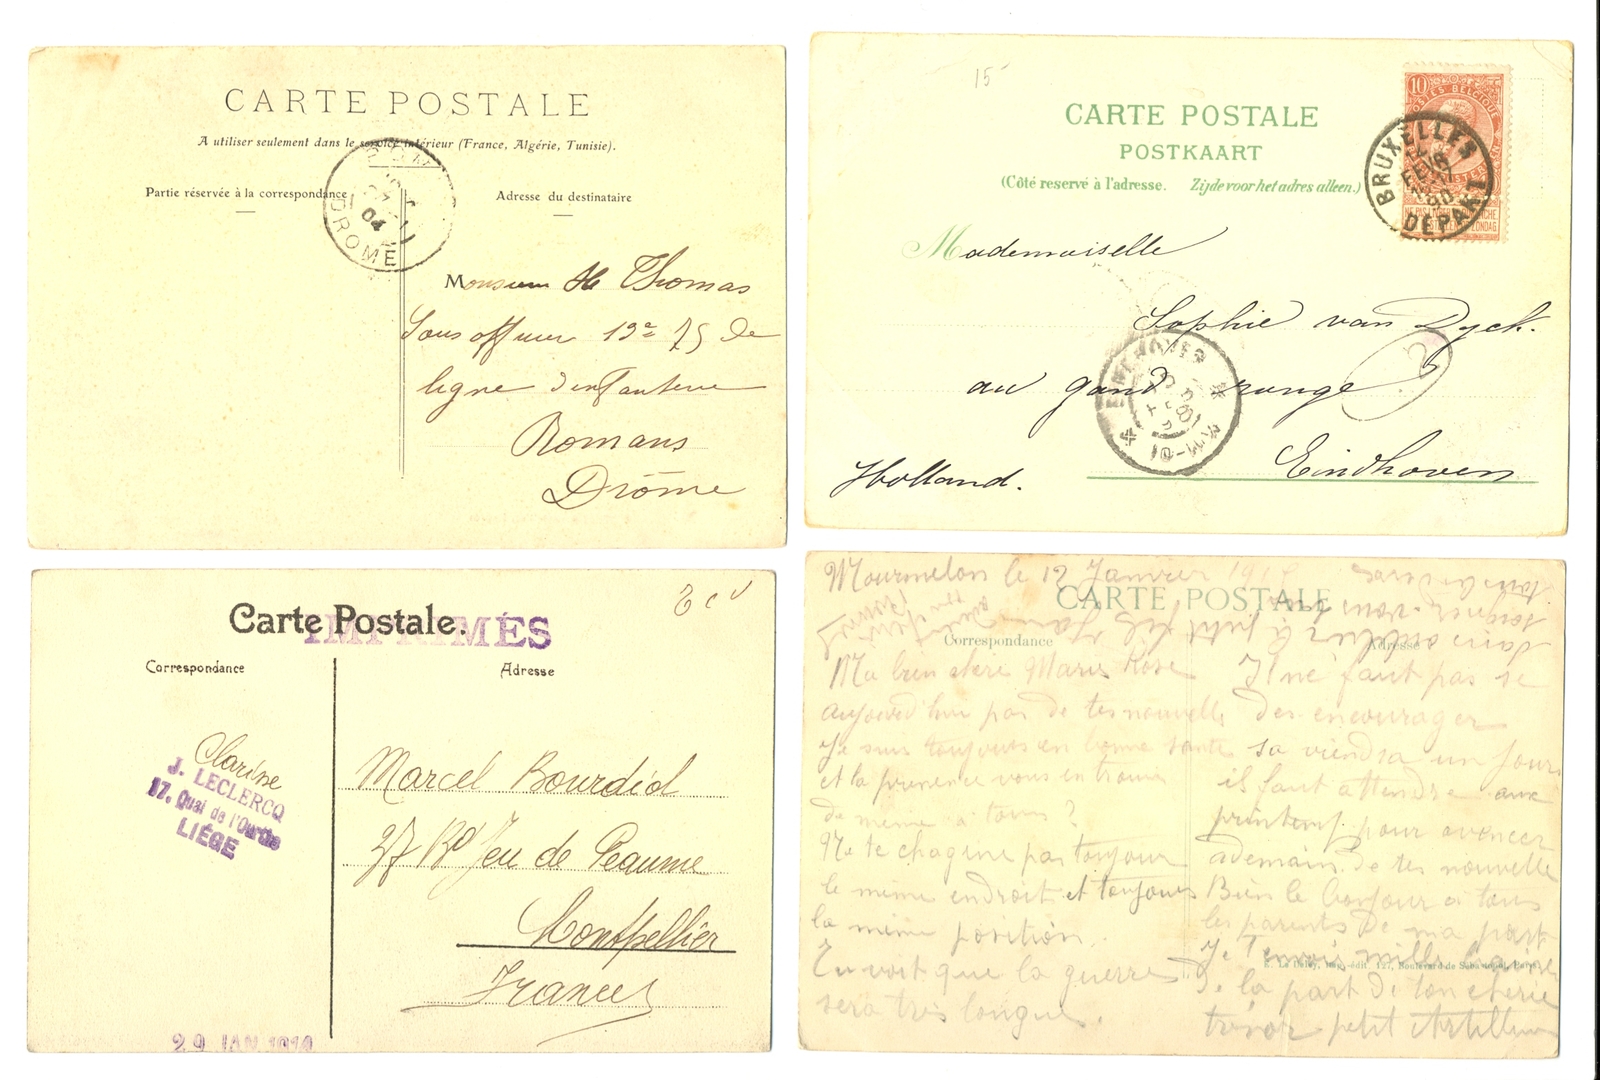 CARTE POSTALE
A utiliser seulement dans le service intérieur (France, Algérie, Tunisie).
Partie réservée à la correspondance
Adresse du destinataire
04
DROME
Monsieur Thomas
Sous officier 13e 75 de
ligne d'infanterie
Romans
Drôme
15
CARTE POSTALE
POSTKAART
(Côté reservé à l'adresse. Zijde voor het adres alleen.)
10
POSTES BELGIQUE
BRUXELLES
DÉPART
Mademoiselle
Sophie van Dyck.
au gand runge
EINDHOVEN
Eindhoven
Holland.
Carte Postale.
IMPRIMÉS
Correspondance
Adresse
Clarisse
J. LECLERCQ
17. Quai de l'Ourthe
LIÉGE
Marcel Bourdiol
27 Bd Jeu de Peaume
Montpellier
France
29 JAN. 1910
Mourmelon le 12 Janvier
CARTE POSTALE
Correspondance
Adresse
Ma bien chère Marie Rose
aujourd'hui pas de tes nouvelle
Je suis toujours en bonne santé
et la présence vous en trouve
de même a tous ?
Ne te chagrine pas toujour
le même endroit et toujours
la même position.
Tu voit que la guerre
sera très longue.
Il ne faut pas se
des encourager
sa viendra un jour
il faut attendre aux
printemps pour avencer
a demain de tes nouvelle
Bien le bonjour a tous
les parents de ma part
Je t'envois mille
de la part de ton cherie
trésor petit Artilleur